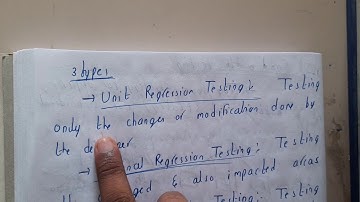 3 types
→ Unit Regression Testing : Testing
only the changes or modification done by
the
→ Regression Testing : Testing
& also impacted areas
Testing : Testing